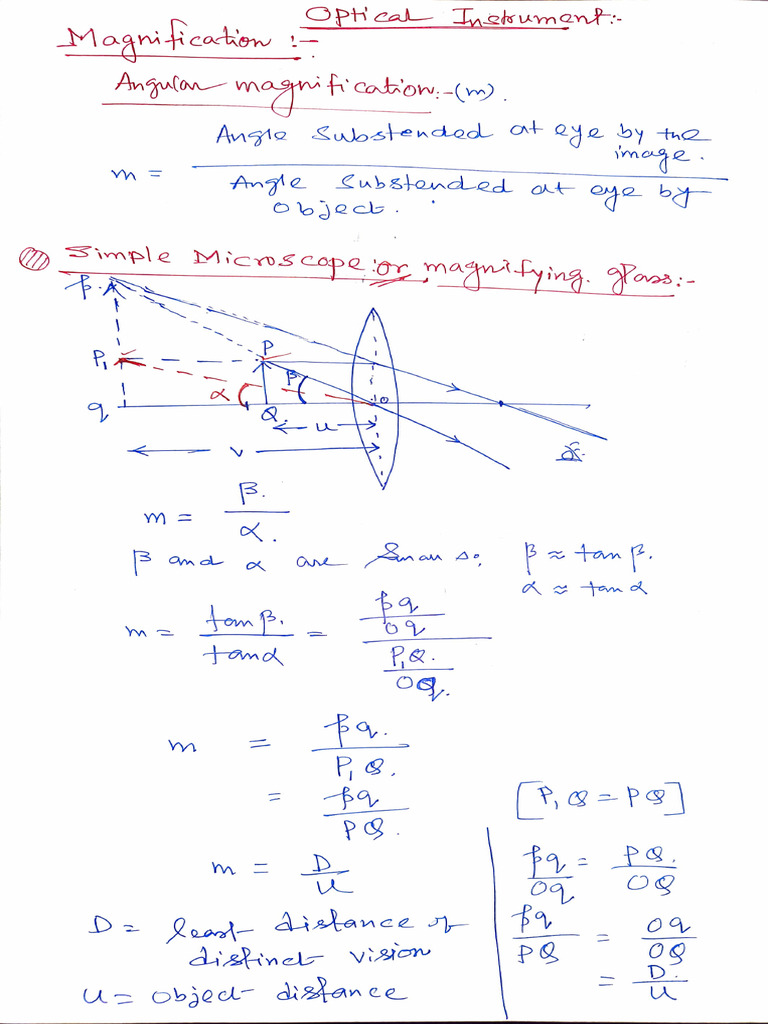 Optical Instrument:-
Magnification :-
Angular magnification:-(m).
m = Angle Substended at eye by the image. / Angle Substended at eye by object.
Simple Microscope: or magnifying glass:-
p
P₁ P
α β O
q Q
u
v
m = β / α
β and α are Small so, β ≈ tan β.
α ≈ tan α
m = tan β / tan α = (pq / Oq) / (P₁Q / OQ)
m = pq / P₁Q
= pq / PQ [P₁Q = PQ]
m = D / u
D = least distance of distinct vision
u = object distance
pq / Oq = PQ / OQ
pq / PQ = Oq / OQ
= D / u